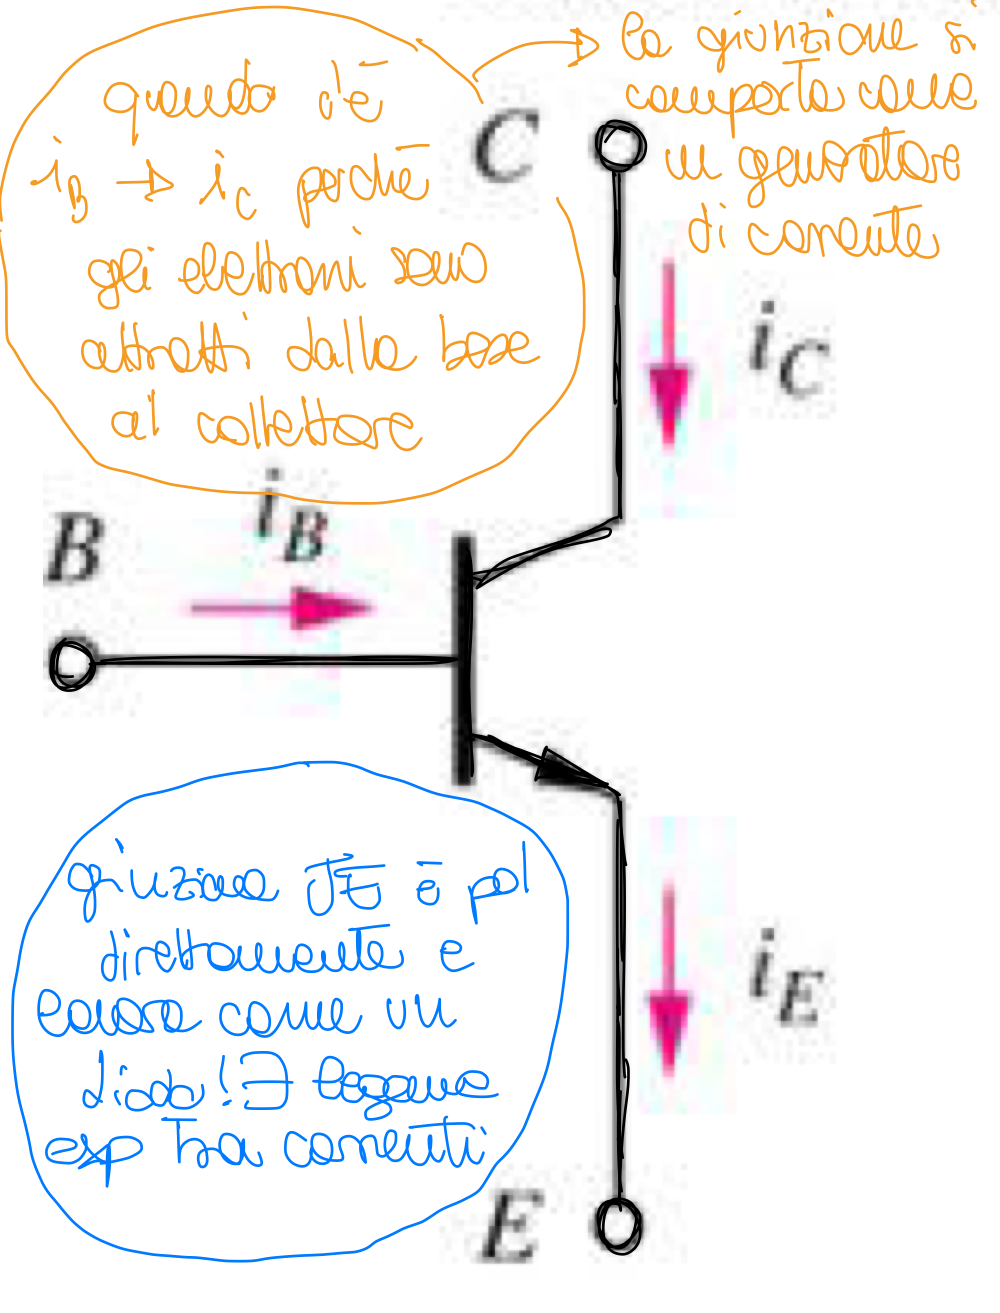 quando c'è
iB → iC perché
gli elettroni sono
attratti dalla base
al collettore
→ la giunzione si
comporta come
un generatore
di corrente
C
iC
B
iB
giunzione JE è pol
direttamente e
lavora come un
diodo! ∃ legame
esp tra correnti
iE
E